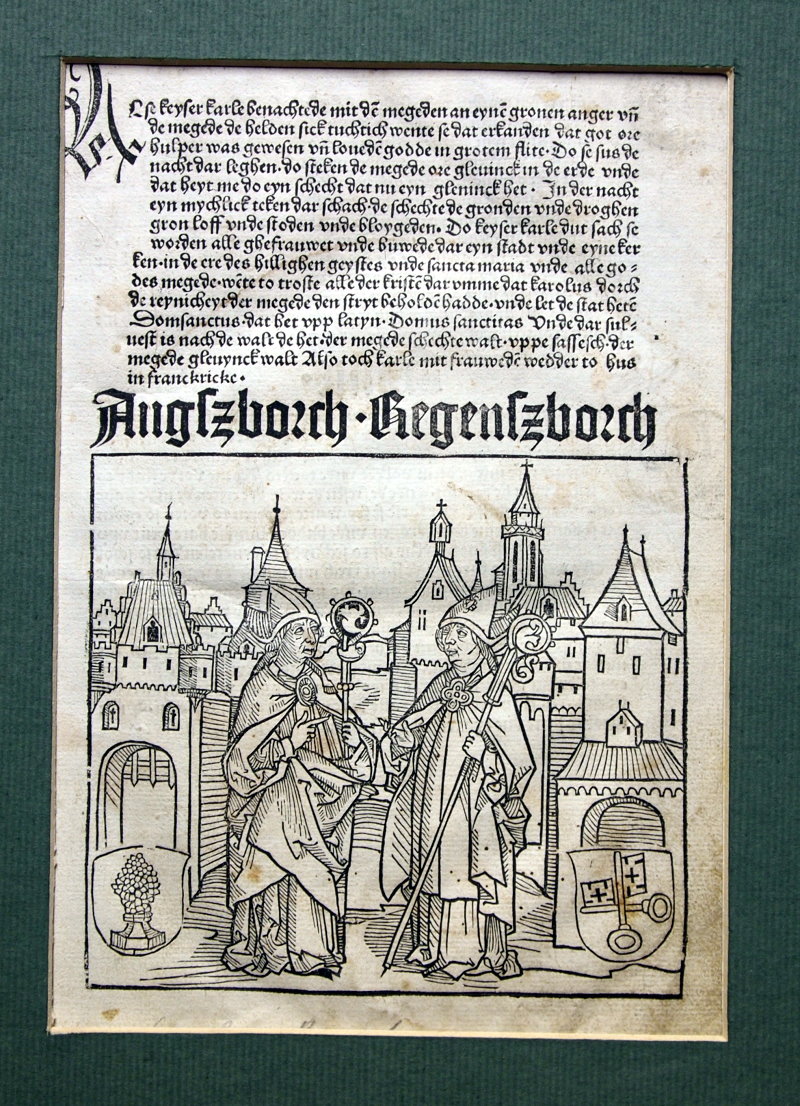 Lse keyser karle benachtede mit dē megeden an eynē gronen anger vn̄
de megede de helden sick tuchtich wente se dat erkanden dat got ore
hulper was gewesen vn̄ louedē godde in grotem flite · Do se sus de
nacht dar leghen · do steken de megede ore gleuinck in de erde vnde
dat heyt me do eyn schecht dat nu eyn gleninck het · In der nacht
eyn mychlick teken dar schach · de schechte de gronden vnde droghen
gron loff vnde stoden vnde bloygeden · Do keyser karle dut sach se
worden alle ghefrauwet vnde buwede dar eyn stadt vnde eyne ker
ken · in de ere des hillighen geystes vnde sancta maria vnde alle go⸗
des megede · wēte to troste alle der kristē dar vmme dat karolus dorch
de reynicheyt der megede den stryt beholdē hadde · vnde let de stat hetē
Domsanctus · dat het vpp latyn · Domus sanctitas Vnde dar sul⸗
uest is nach de walt de het · der megede schechte walt · vppe sassesch · der
megede gleuynck walt Also toch karle mit frauwedē wedder to hus
in franckricke ·
Augszborch · Regenszborch